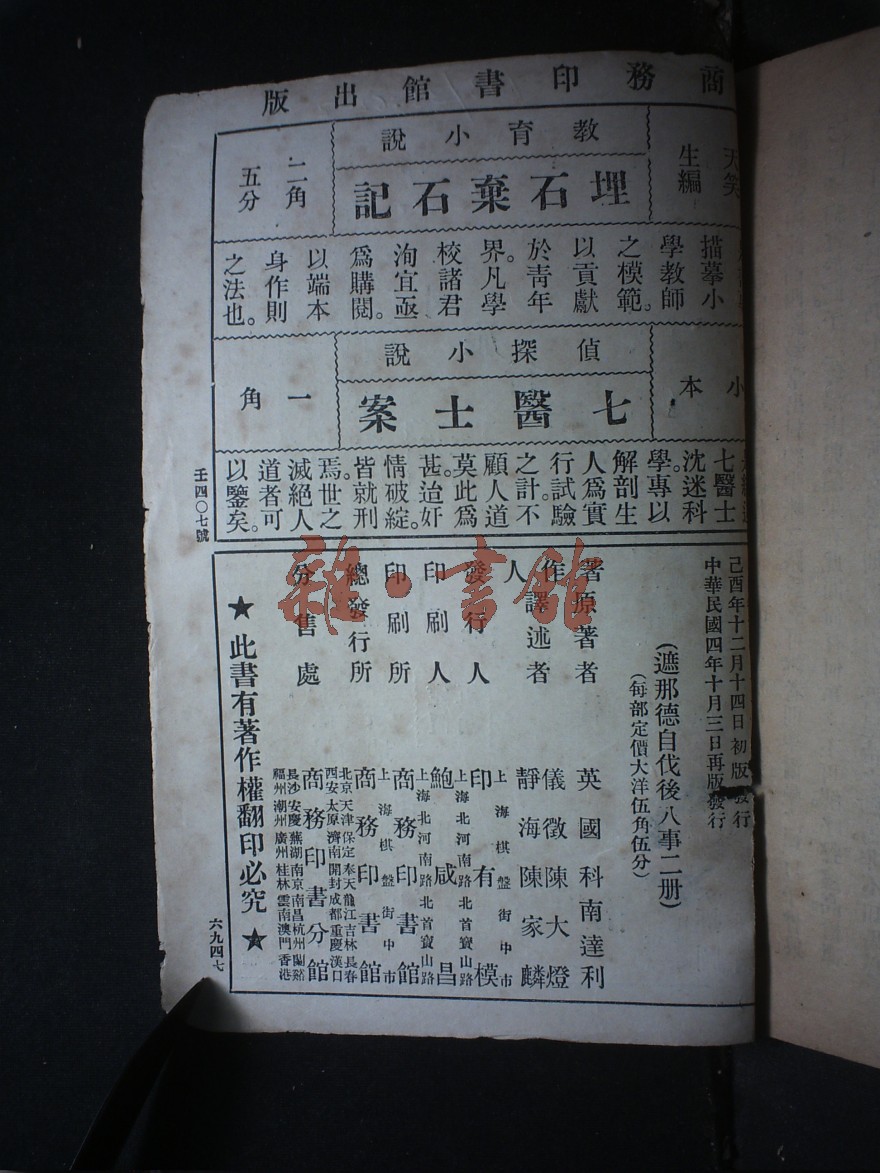 商務印書館出版
天笑
生編
教育小說
埋石棄石記
二角
五分
描摹小
學教師
之模範。
以貢獻
於青年
界。凡學
校諸君
洵宜亟
為購閱。
以端本
身作則
之法也。
小本
偵探小說
七醫士案
一角
七醫士
沈迷科
學專以
解剖生
人為實
行試驗
之計。不
顧人道
莫此為
甚。迨奸
情破綻。
皆就刑
焉。世之
滅絕人
道者可
以鑒矣。
壬四〇七號
己酉年十二月十四日初版發行
中華民國四年十月三日再版發行
(遮那德自伐後八事二册)
(每部定價大洋伍角伍分)
原著者 英國科南達利
譯述者 儀徵陳大燈
靜海陳家麟
發行人 印有模
上海棋盤街中市
印刷人 鮑咸昌
上海北河南路北首寶山路
印刷所 商務印書館
上海北河南路北首寶山路
總發行所 商務印書館
上海棋盤街中市
分售處 商務印書分館
北京天津保定奉天龍江吉林長春
西安太原濟南開封成都重慶漢口
長沙安慶蕪湖南京南昌杭州蘭谿
福州潮州廣州桂林雲南澳門香港
著作人
★此書有著作權翻印必究★
六九四七
雜·書館